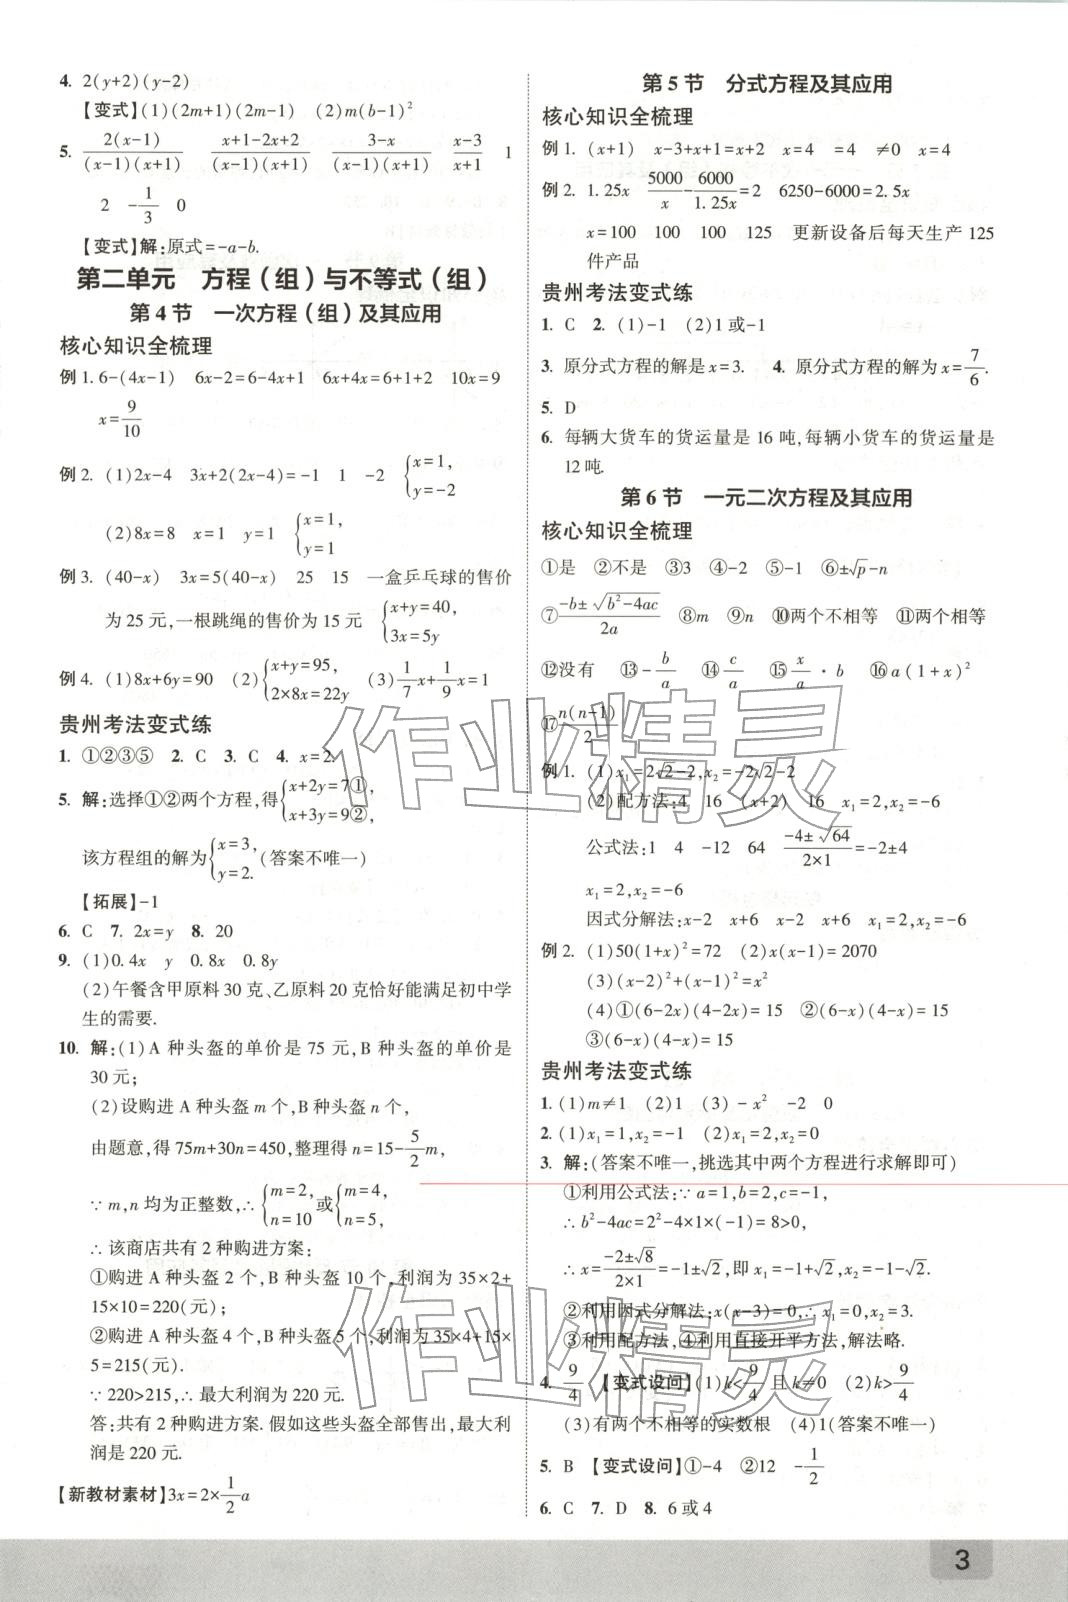 4. 2(y+2)(y-2)
【变式】(1)(2m+1)(2m-1) (2)m(b-1)²
5. 2(x-1)/(x-1)(x+1) x+1-2x+2/(x-1)(x+1) 3-x/(x-1)(x+1) x-3/x+1 1
2 -1/3 0
【变式】解:原式=-a-b.
第二单元 方程(组)与不等式(组)
第4节 一次方程(组)及其应用
核心知识全梳理
例1. 6-(4x-1) 6x-2=6-4x+1 6x+4x=6+1+2 10x=9
x=9/10
例2. (1)2x-4 3x+2(2x-4)=-1 1 -2 {x=1, y=-2
(2)8x=8 x=1 y=1 {x=1, y=1
例3. (40-x) 3x=5(40-x) 25 15 一盒乒乓球的售价
为25元,一根跳绳的售价为15元 {x+y=40, 3x=5y
例4. (1)8x+6y=90 (2){x+y=95, 2×8x=22y (3)1/7x+1/9x=1
贵州考法变式练
1. ①②③⑤ 2. C 3. C 4. x=2.
5. 解:选择①②两个方程,得{x+2y=7①, x+3y=9②,
该方程组的解为{x=3, y=2. (答案不唯一)
【拓展】-1
6. C 7. 2x=y 8. 20
9. (1)0.4x y 0.8x 0.8y
(2)午餐含甲原料30克、乙原料20克恰好能满足初中学
生的需要.
10. 解:(1)A种头盔的单价是75元,B种头盔的单价是
30元;
(2)设购进A种头盔m个,B种头盔n个,
由题意,得75m+30n=450,整理得n=15-5/2m,
∵m,n均为正整数,∴{m=2, n=10或{m=4, n=5,
∴该商店共有2种购进方案:
①购进A种头盔2个,B种头盔10个,利润为35×2+
15×10=220(元);
②购进A种头盔4个,B种头盔5个,利润为35×4+15×
5=215(元);
∵220>215,∴最大利润为220元.
答:共有2种购进方案.假如这些头盔全部售出,最大利
润是220元.
【新教材素材】3x=2×1/2a
第5节 分式方程及其应用
核心知识全梳理
例1. (x+1) x-3+x+1=x+2 x=4 =4 ≠0 x=4
例2. 1.25x 5000/x-6000/1.25x=2 6250-6000=2.5x
x=100 100 100 125 更新设备后每天生产125
件产品
贵州考法变式练
1. C 2. (1)-1 (2)1或-1
3. 原分式方程的解是x=3. 4. 原分式方程的解为x=7/6.
5. D
6. 每辆大货车的货运量是16吨,每辆小货车的货运量是
12吨.
第6节 一元二次方程及其应用
核心知识全梳理
①是 ②不是 ③3 ④-2 ⑤-1 ⑥±√p-n
⑦-b±√b²-4ac/2a ⑧m ⑨n ⑩两个不相等 ⑪两个相等
⑫没有 ⑬-b/a ⑭c/a ⑮x/a·b ⑯a(1+x)²
⑰n(n-1)/2
例1. (1)x₁=2√2-2,x₂=-2√2-2
(2)配方法:4 16 (x+2) 16 x₁=2,x₂=-6
公式法:1 4 -12 64 -4±√64/2×1=-2±4
x₁=2,x₂=-6
因式分解法:x-2 x+6 x-2 x+6 x₁=2,x₂=-6
例2. (1)50(1+x)²=72 (2)x(x-1)=2070
(3)(x-2)²+(x-1)²=x²
(4)①(6-2x)(4-2x)=15 ②(6-x)(4-x)=15
③(6-x)(4-x)=15
贵州考法变式练
1. (1)m≠1 (2)1 (3)-x² -2 0
2. (1)x₁=1,x₂=-1 (2)x₁=2,x₂=0
3. 解:(答案不唯一,挑选其中两个方程进行求解即可)
①利用公式法:∵a=1,b=2,c=-1,
∴b²-4ac=2²-4×1×(-1)=8>0,
∴x=-2±√8/2×1=-1±√2,即x₁=-1+√2,x₂=-1-√2.
②利用因式分解法:x(x-3)=0,∴x₁=0,x₂=3.
③利用配方法,④利用直接开平方法,解法略.
4. 9/4 【变式设问】(1)k<9/4且k≠0 (2)k>9/4
(3)有两个不相等的实数根 (4)1(答案不唯一)
5. B 【变式设问】①-4 ②12 -1/2
6. C 7. D 8. 6或4
3
作业精灵
作业精灵